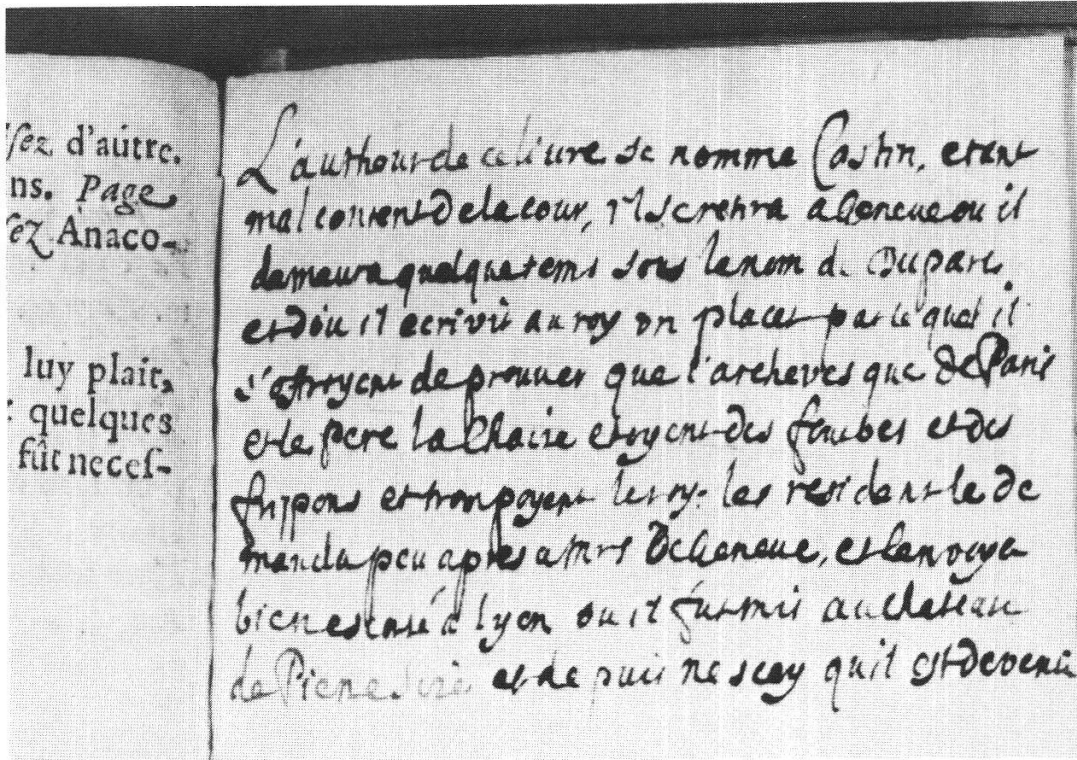 ſſez d'autre.
ns. Page
ſez Anaco-
luy plait,
: quelques
fût neceſ-
L'authour de ce liure se nomme Castin, etant
mal content de la cour, il se retira a Geneue ou il
demeura quelque tems sous le nom de Duparc
et d'ou il ecrivit au roy vn placet par le quel il
s'offroyent de prouuer que l'archeves que de Paris
et le pere la Chaire etoyent des fourbes et des
frippons et trompoyent le roy. les resident le de
manda peu apres a Mrs de Geneue, et l'envoya
bien escorté a Lyon ou il fut mis au chateau
de Piene Size et de puis ne scay qu'il est devenu